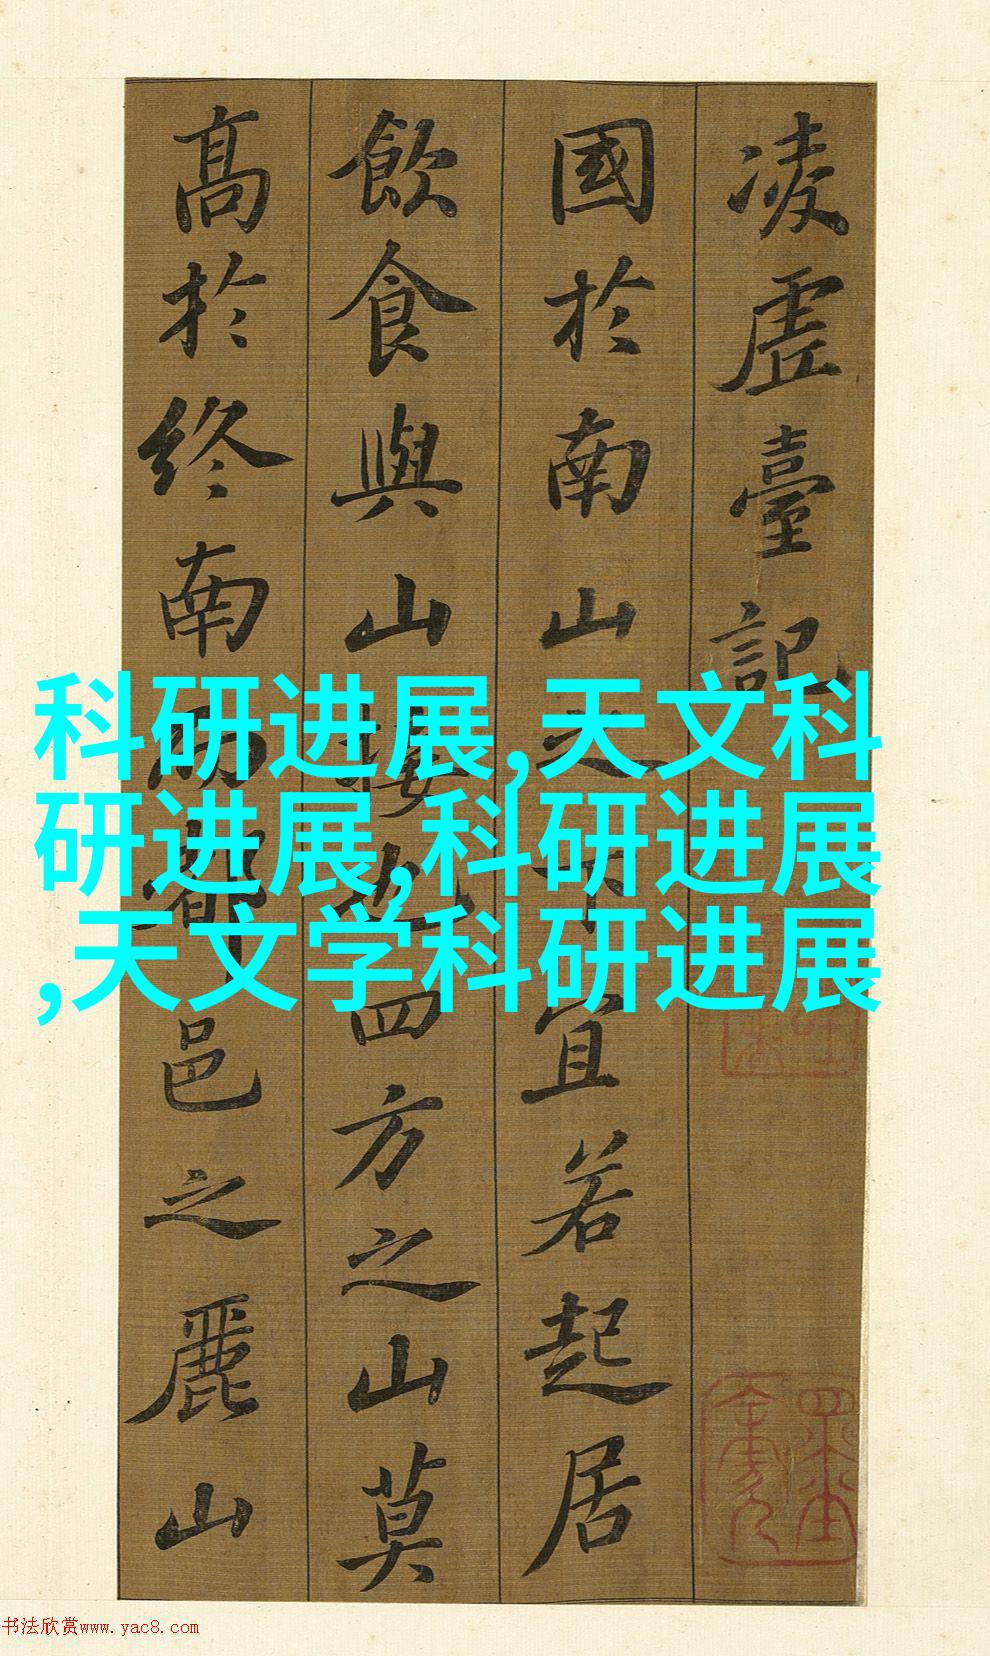 凌虛臺記
國於南山之下宜若起居
飲食與山接也四方之山莫
高於終南而都邑之麗山
科研进展,天文科
研进展,科研进展
,天文学科研进展
书法欣赏www.yac8.com